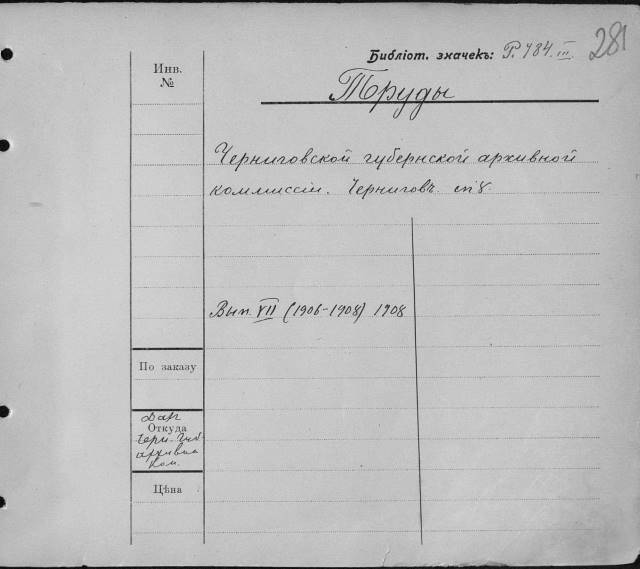 281
Библіот. значекъ: P. 784. III
Инв.
№
Труды
Черниговской губернской архивной
коммиссіи. Черниговъ. 8
Вып. VII (1906-1908) 1908
По заказу
Дар
Откуда
Черн. Губ.
архивна
ком.
Цѣна